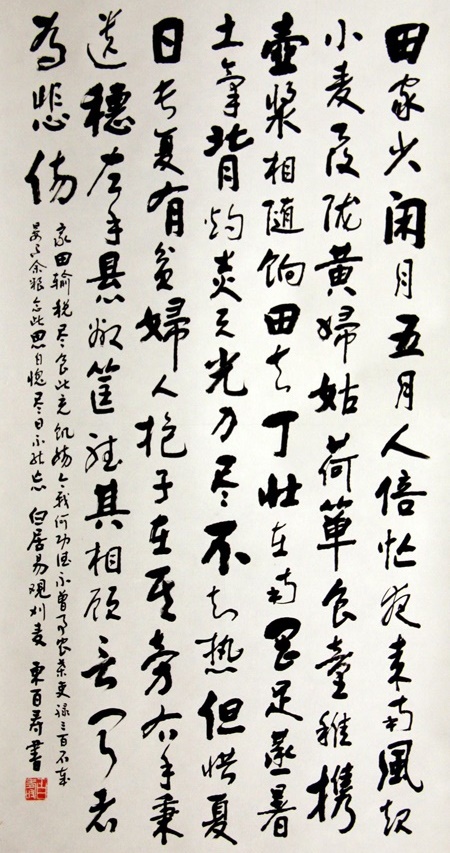 田家少闲月五月人倍忙夜来南风起
小麦覆陇黄婦姑荷箪食童稚携
壺漿相随饷田去丁壮在南冈足蒸暑
土氣背灼炎天光力尽不知热但惜夏
日长复有貧婦人抱子在其旁右手秉
遺穗左手悬敝筐听其相顾言闻者
為悲傷
家田輸税尽食此充饥腸今我何功德不曾事农桑吏禄三百石岁
晏有余粮念此思自愧尽日不能忘 白居易观刈麦 东百寿書